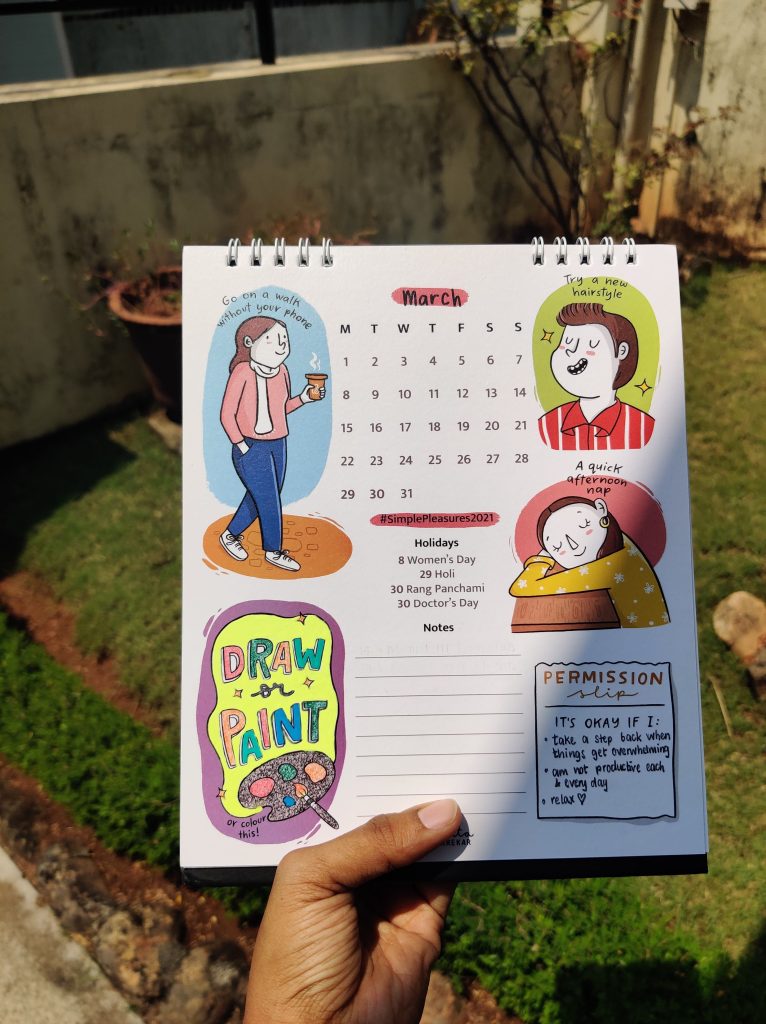 Go on a walk
without your phone
March
M T W T F S S
1 2 3 4 5 6 7
8 9 10 11 12 13 14
15 16 17 18 19 20 21
22 23 24 25 26 27 28
29 30 31
#SimplePleasures2021
Holidays
8 Women's Day
29 Holi
30 Rang Panchami
30 Doctor's Day
Notes
Try a new
hairstyle
A quick
afternoon
nap
DRAW
or
PAINT
or colour
this!
PERMISSION
slip
IT'S OKAY IF I:
• take a step back when
things get overwhelming
• am not productive each
& every day
• relax♡